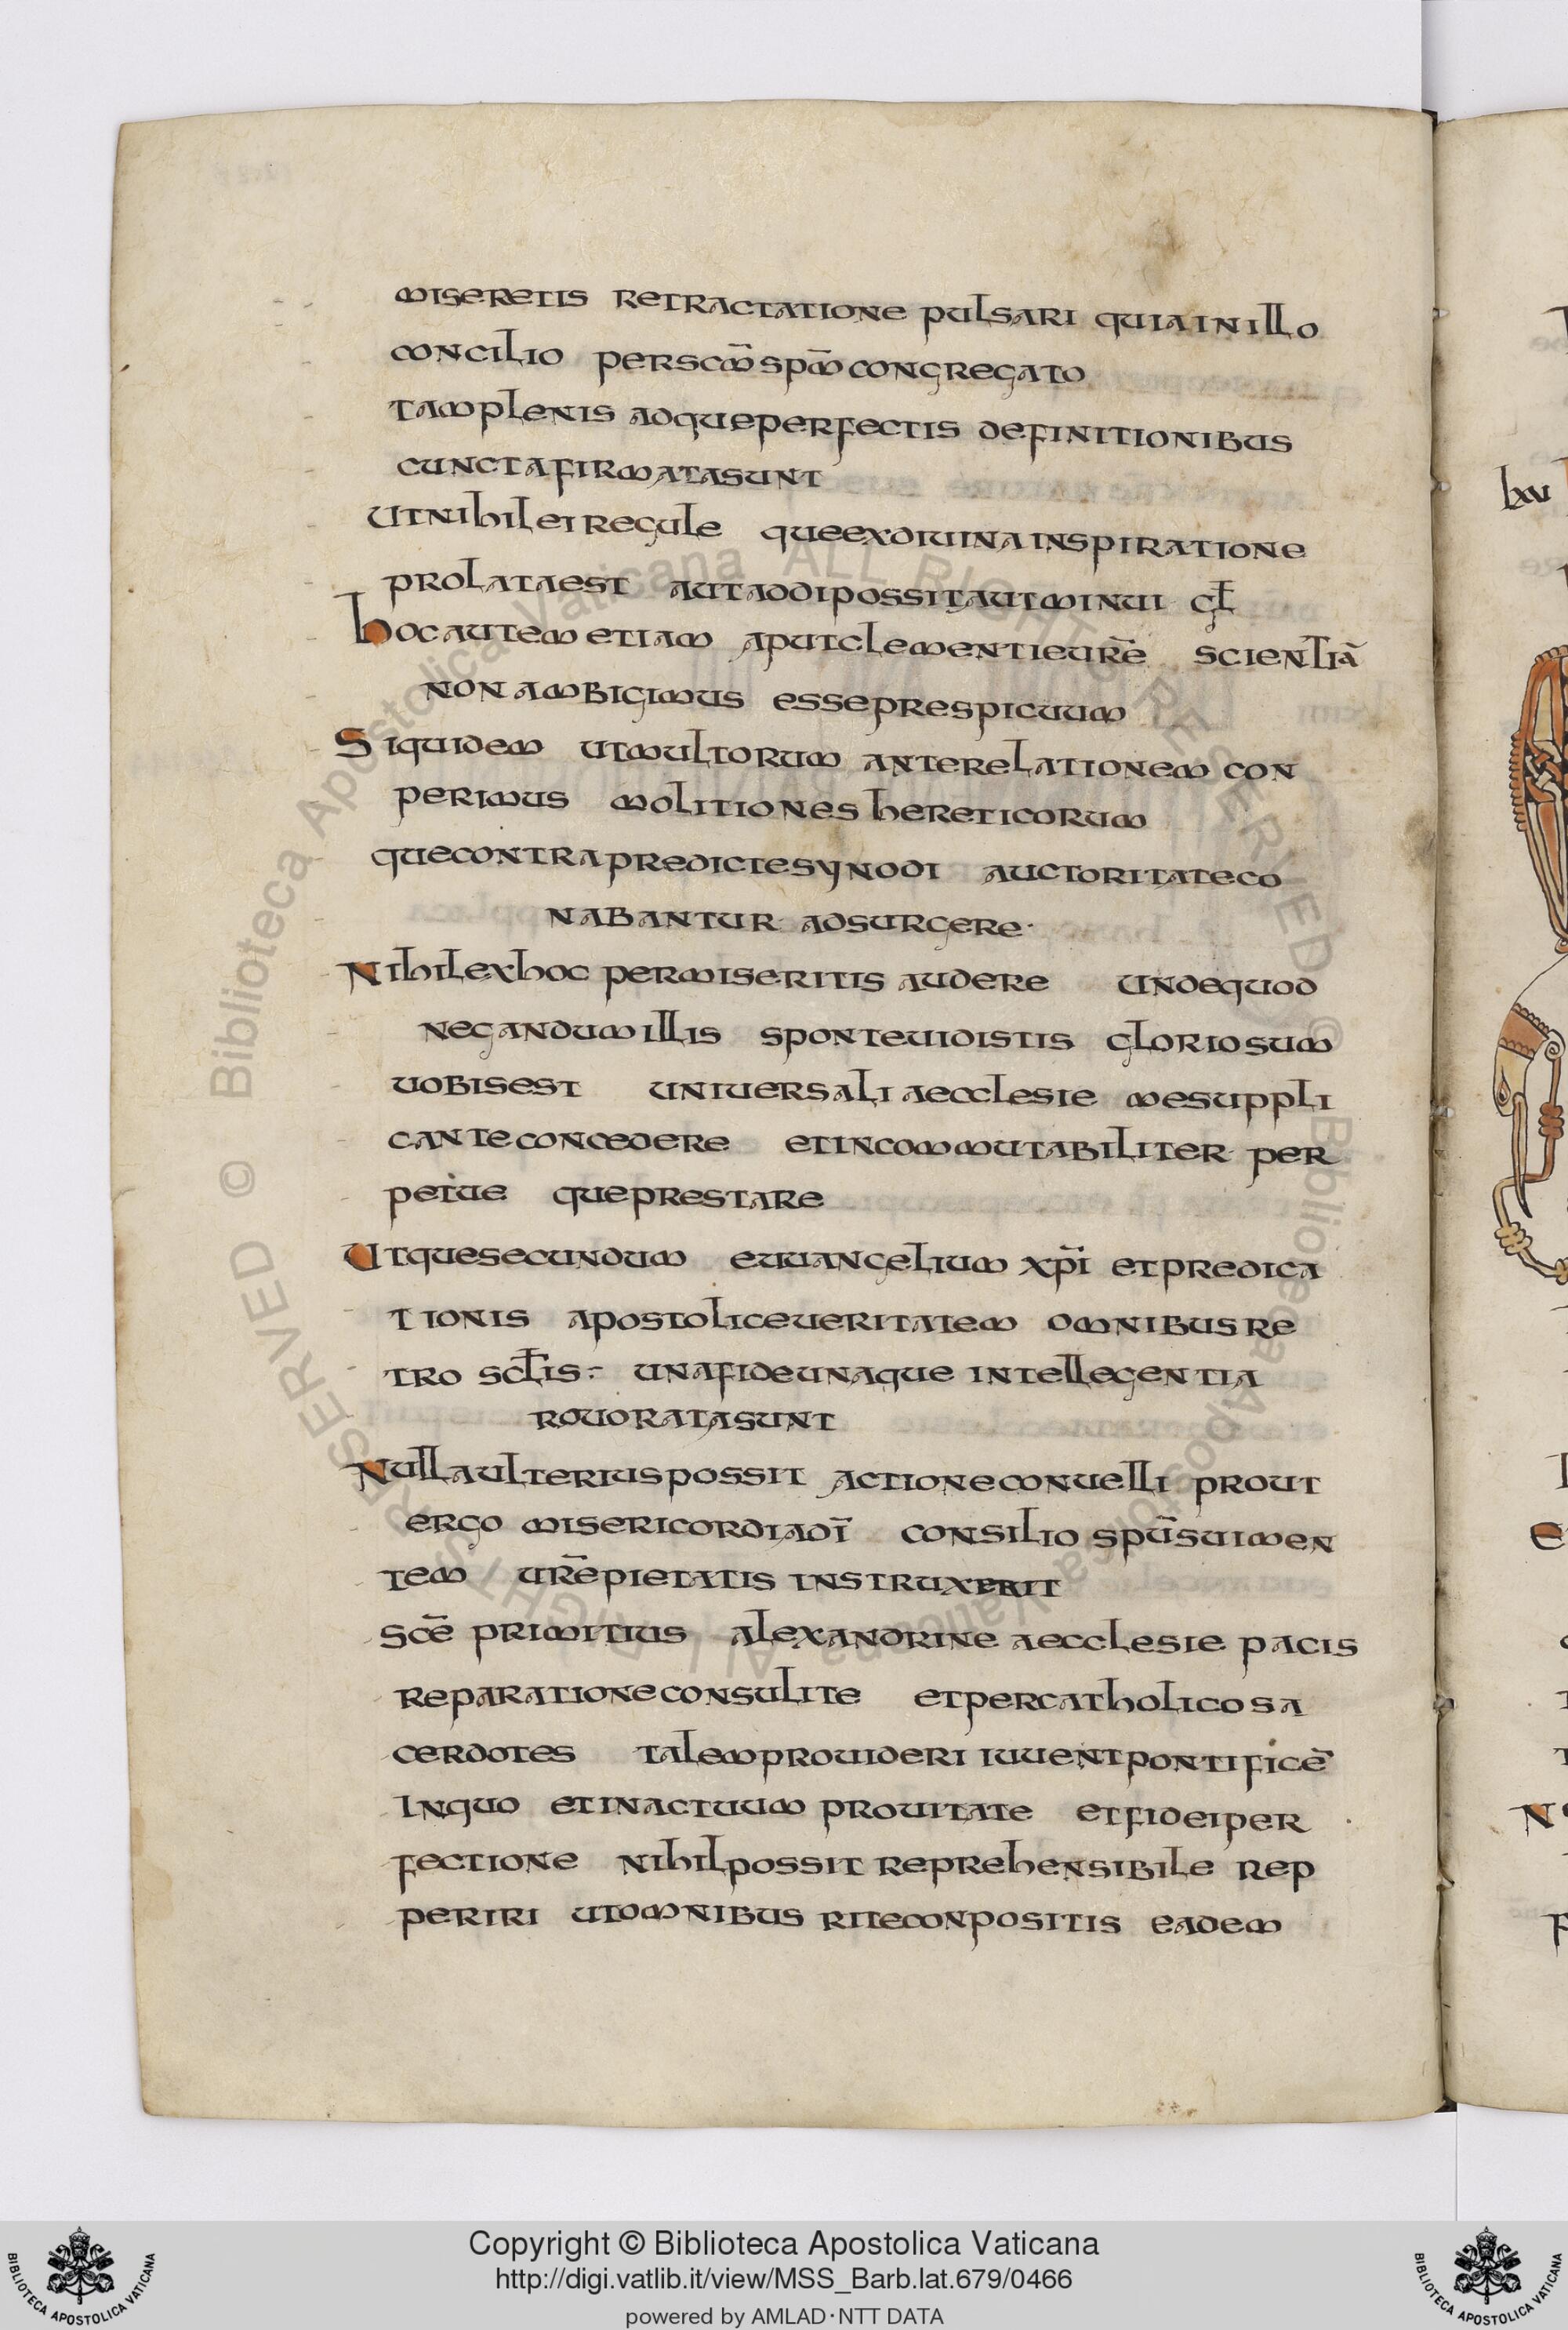 miseretis retractatione pulsari quiainillo
concilio perscm̄ spm̄ congregato
tamplenis adqueperfectis definitionibus
cunctafirmatasunt
Utnihilei regule queexdiuinainspiratione
prolataest autaddipossitautminui
hocautem etiam aputclementieur̄e scientiā
nonambigimus esseprespicuum
Siquidem utmultorum anterelationem con
perimus molitiones hereticorum
quecontrapredictesynodi auctoritateco
nabantur adsurgere·
Nihilexhoc permiseritis audere undequod
negandumillis spontevidistis gloriosum
uobisest uniuersali aecclesie mesuppli
canteconcedere etincommutabiliter per
petue queprestare
Utquesecundum euuangelium xp̄i etpredica
tionis apostoliceueritatem omnibusre
tro sctis:- unafideunaque intellegentia
rouoratasunt
Nullaulteriuspossit actioneconuelli prout
ergo misericordiadī consilio spūsuimen
tem ur̄epietatis instruxerit
Scē primitius alexandrine aecclesie pacis
reparationeconsulite etpercatholicosa
cerdotes talemprouideri iuuentpontificē
Inquo etinactuum prouitate etfideiper
fectione nihilpossit reprehensibile rep
periri utomnibus riteconpositis eadem
lxv
Copyright © Biblioteca Apostolica Vaticana
http://digi.vatlib.it/view/MSS_Barb.lat.679/0466
powered by AMLAD·NTT DATA
BIBLIOTECA APOSTOLICA VATICANA
BIBLIOTECA APOSTOLICA VATICANA
© Biblioteca Apostolica Vaticana ALL RIGHTS RESERVED
© Biblioteca Apostolica Vaticana ALL RIGHTS RESERVED